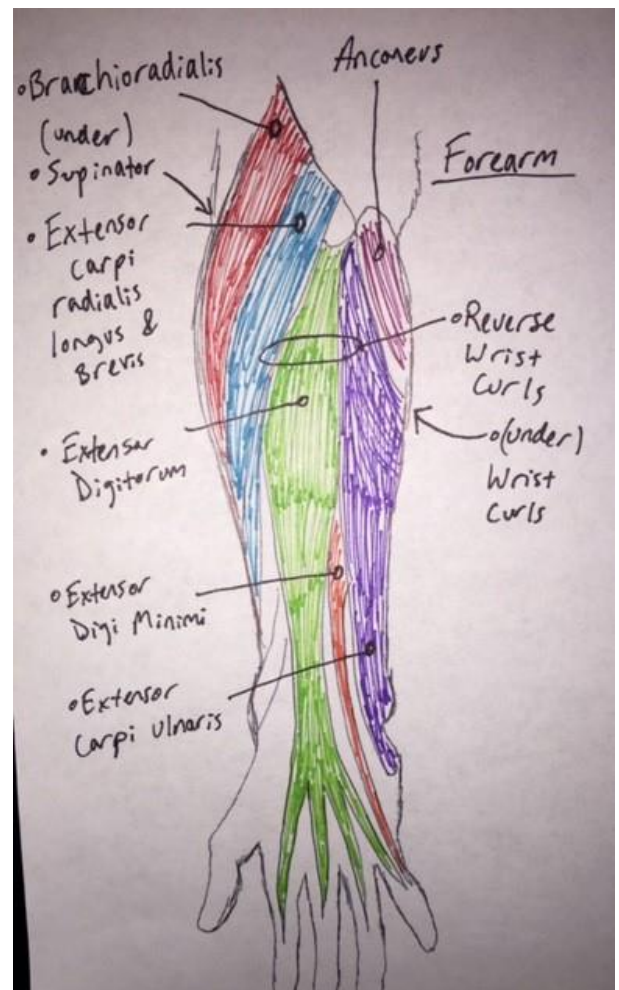 •Brachioradialis
(under)
•Supinator
•Extensor
Carpi
radialis
longus &
Brevis
• Extensar
Digitorum
•Extensor
Digi Minimi
•Extensor
Carpi Ulnaris
Anconeus
Forearm
•Reverse
Wrist
Curls
•(under)
Wrist
Curls